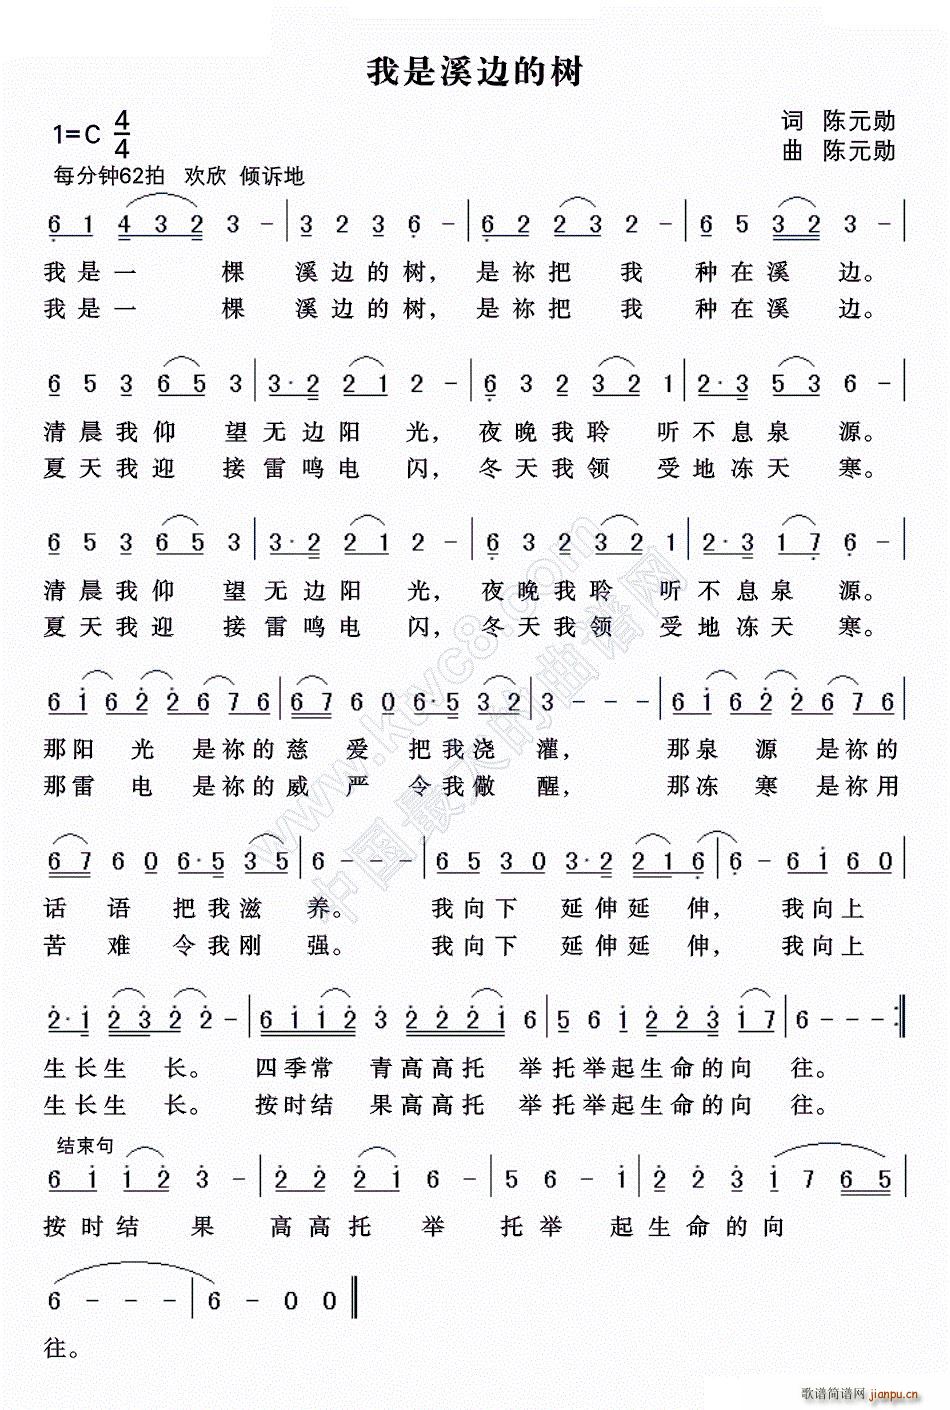 我是溪边的树
1=C 4/4
词 陈元勋
曲 陈元勋
每分钟62拍 欢欣 倾诉地
6 1 4 3 2 3 - | 3 2 3 6 - | 6 2 2 3 2 - | 6 5 3 2 3 - |
我是一 棵 溪边的树, 是祢把 我 种在溪 边。
我是一 棵 溪边的树, 是祢把 我 种在溪 边。
6 5 3 6 5 3 | 3· 2 2 1 2 - | 6 3 2 3 2 1 | 2· 3 5 3 6 - |
清晨我仰 望无边阳 光, 夜晚我聆 听不息泉 源。
夏天我迎 接雷鸣电 闪, 冬天我领 受地冻天 寒。
6 5 3 6 5 3 | 3· 2 2 1 2 - | 6 3 2 3 2 1 | 2· 3 1 7 6 - |
清晨我仰 望无边阳 光, 夜晚我聆 听不息泉 源。
夏天我迎 接雷鸣电 闪, 冬天我领 受地冻天 寒。
6 1 6 2 2 6 7 6 | 6 7 6 0 6· 5 3 2 | 3 - - - | 6 1 6 2 2 6 7 6 |
那阳 光 是祢的慈 爱 把我浇 灌, 那泉 源 是祢的
那雷 电 是祢的威 严 令我儆 醒, 那冻 寒 是祢用
6 7 6 0 6· 5 3 5 | 6 - - - | 6 5 3 0 3· 2 2 1 6 | 6 - 6 1 6 0 |
话 语 把我滋 养。 我向下 延伸延 伸, 我向上
苦 难 令我刚 强。 我向下 延伸延 伸, 我向上
2· 1 2 3 2 2 - | 6 1 1 2 3 2 2 2 1 6 | 5 6 1 2 2 3 1 7 | 6 - - - :|
生长生 长。 四季常 青高高托 举托举起生命的向 往。
生长生 长。 按时结 果高高托 举托举起生命的向 往。
结束句
6 1 1 2 3 - | 2 2 2 1 6 - | 5 6 1 - | 2 2 3 1 7 6 5 |
按时结 果 高高托 举 托举 起生命的向
6 - - - | 6 - 0 0 ‖
往。
www.ktvc8.com
中国最大的曲谱网
歌谱简谱网 jianpu.cn